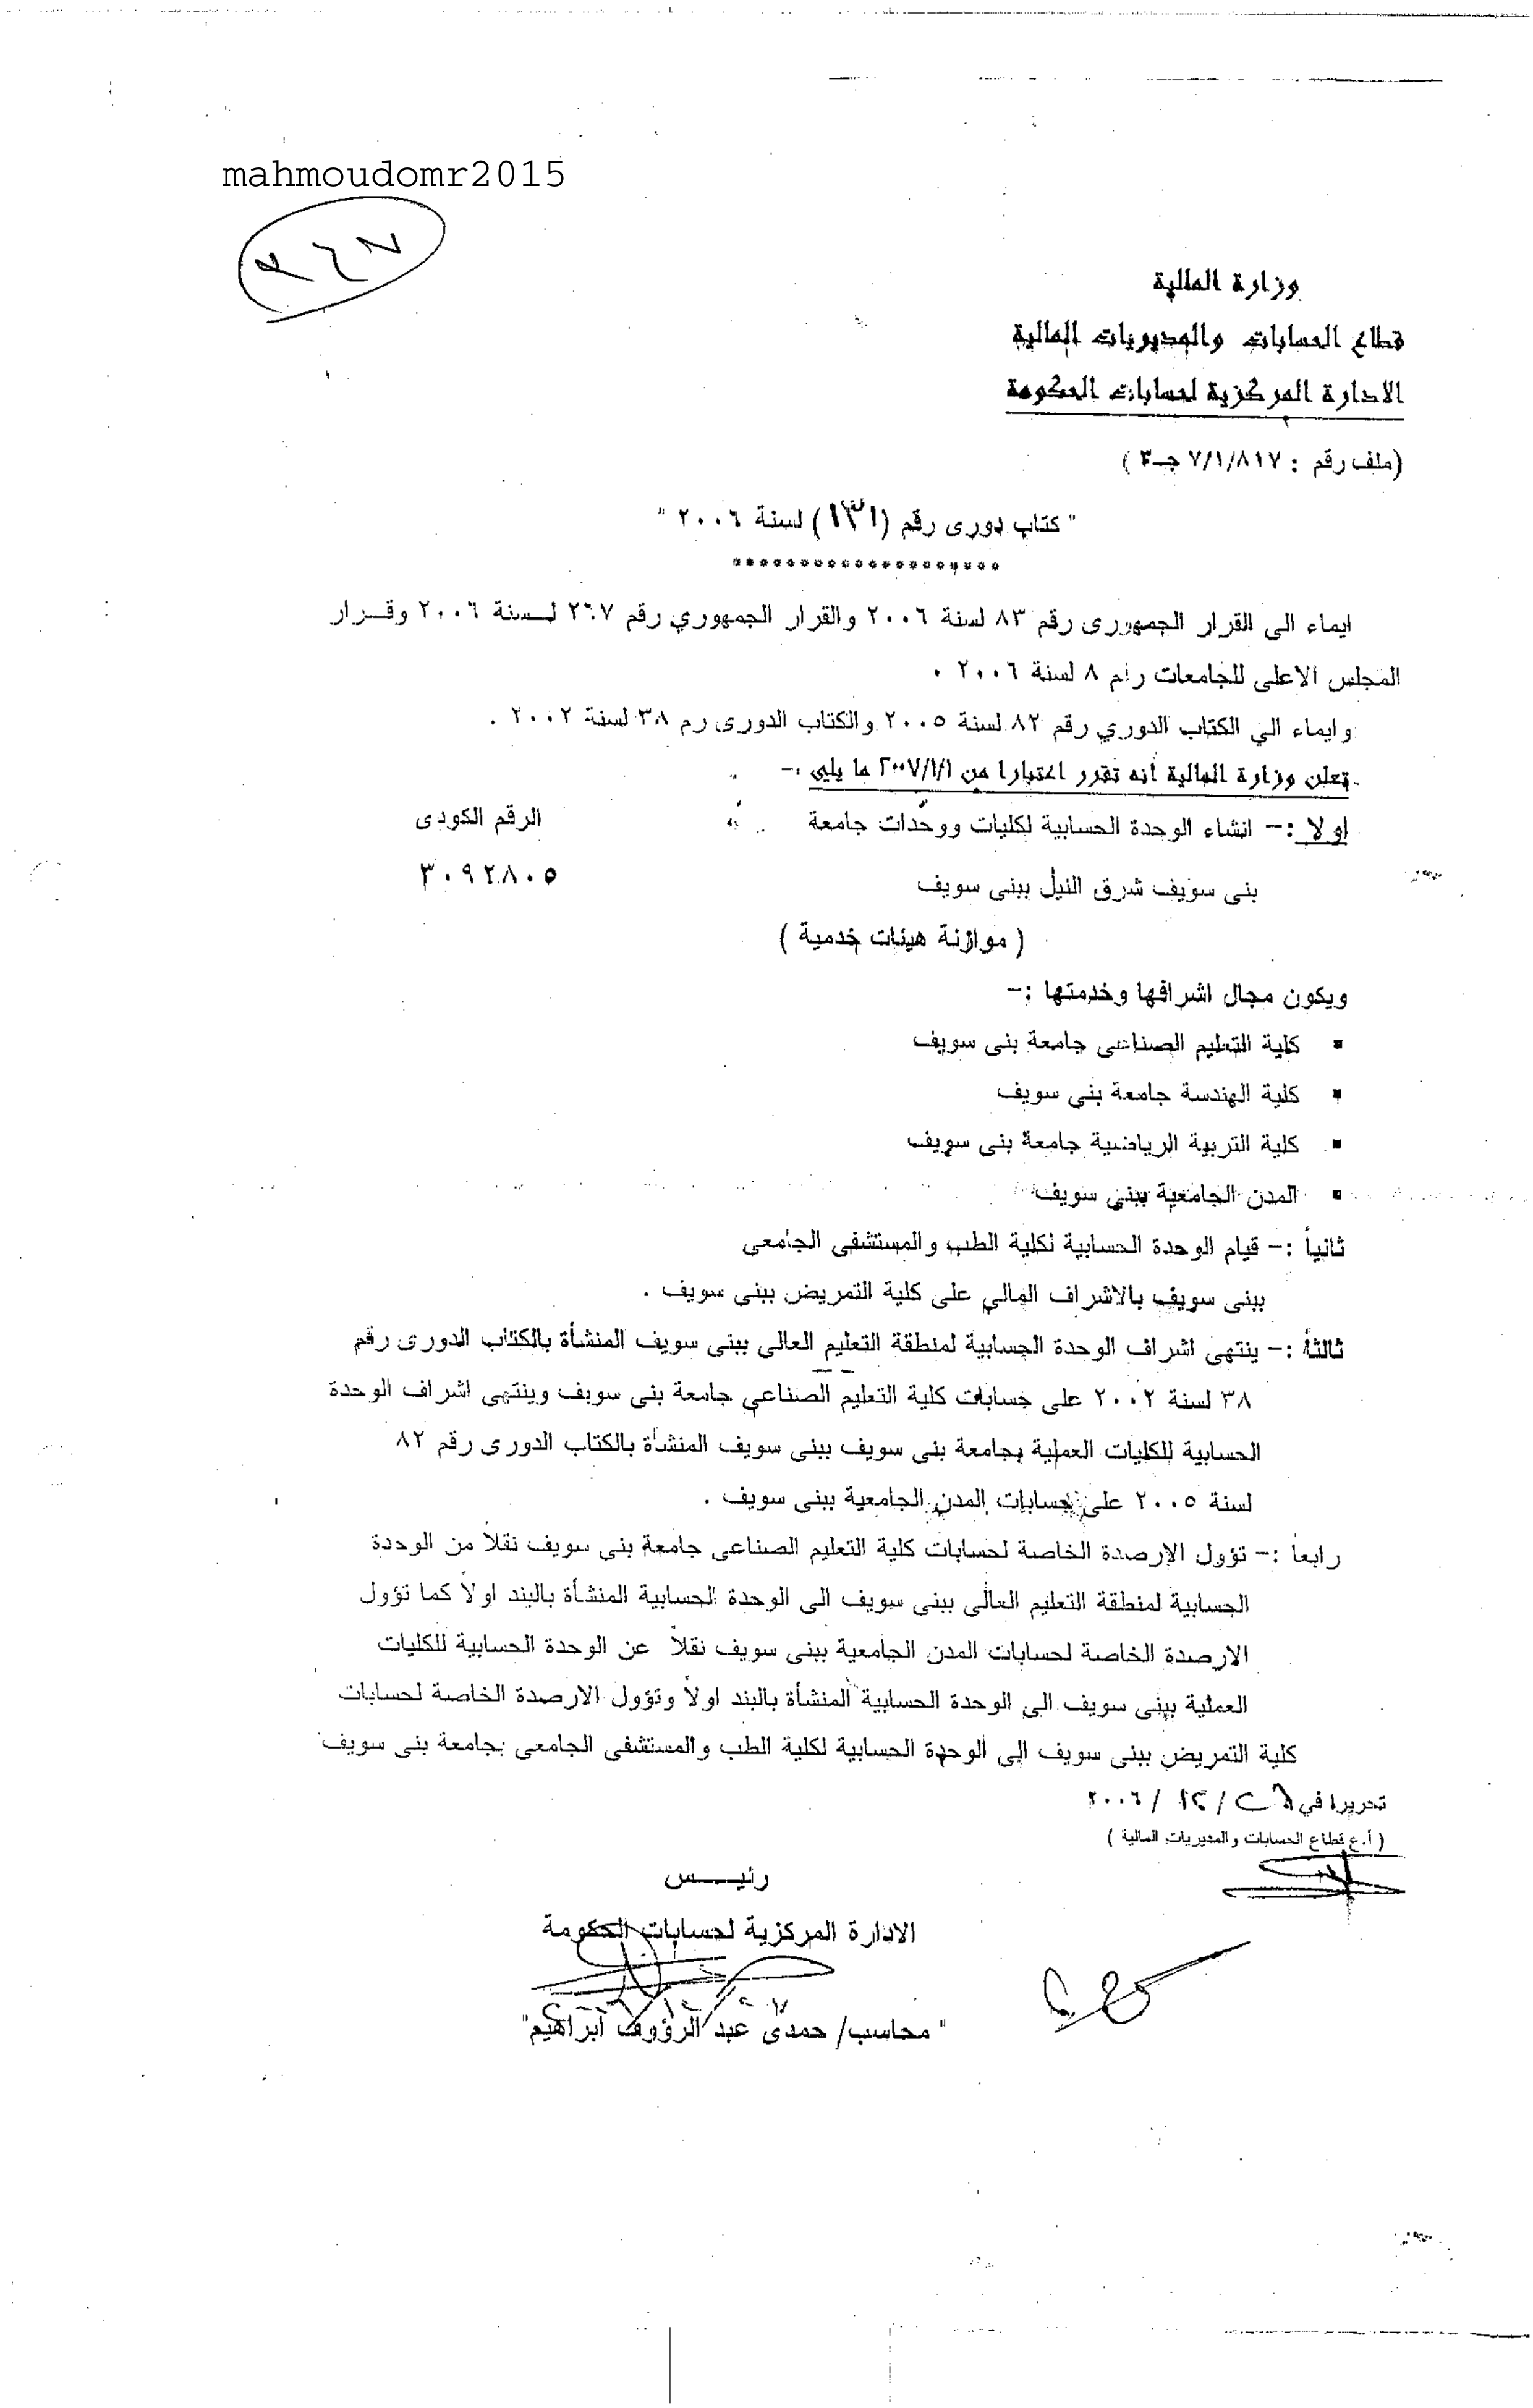 mahmoudomr2015
وزارة المالية
قطاع الحسابات والمديريات المالية
الادارة المركزية لحسابات الحكومة
(ملف رقم : ٧/١/٨١٧ جـ٣ )
" كتاب دورى رقم (١٣١) لسنة ٢٠٠٦ "
********************
ايماء الى القرار الجمهورى رقم ٨٣ لسنة ٢٠٠٦ والقرار الجمهوري رقم ٢٦٧ لـسنة ٢٠٠٦ وقـرار
المجلس الاعلى للجامعات رقم ٨ لسنة ٢٠٠٦ .
وايماء الي الكتاب الدوري رقم ٨٢ لسنة ٢٠٠٥ والكتاب الدورى رم ٣٨ لسنة ٢٠٠٢ .
تعلن وزارة المالية أنه تقرر اعتبارا من ٢٠٠٧/١/١ ما يلى :-
اولا :- انشاء الوحدة الحسابية لكليات ووحدات جامعة
الرقم الكودى
بنى سويف شرق النيل ببنى سويف
٣٠٩٢٨٠٥
( موازنة هيئات خدمية )
ويكون مجال اشرافها وخدمتها :-
▪ كلية التعليم الصناعى جامعة بنى سويف
▪ كلية الهندسة جامعة بني سويف
▪ كلية التربية الرياضية جامعة بنى سويف
▪ المدن الجامعية ببنى سويف
ثانياً :- قيام الوحدة الحسابية لكلية الطب والمستشفى الجامعى
ببنى سويف بالاشراف المالي على كلية التمريض ببنى سويف .
ثالثاً :- ينتهى اشراف الوحدة الحسابية لمنطقة التعليم العالى ببنى سويف المنشأة بالكتاب الدورى رقم
٣٨ لسنة ٢٠٠٢ على حسابات كلية التعليم الصناعي جامعة بنى سويف وينتهى اشراف الوحدة
الحسابية للكليات العملية بجامعة بنى سويف ببنى سويف المنشأة بالكتاب الدورى رقم ٨٢
لسنة ٢٠٠٥ على حسابات المدن الجامعية ببنى سويف .
رابعا :- تؤول الارصدة الخاصة لحسابات كلية التعليم الصناعى جامعة بني سويف نقلاً من الوحدة
الحسابية لمنطقة التعليم العالى ببنى سويف الى الوحدة الحسابية المنشأة بالبند اولاً كما تؤول
الارصدة الخاصة لحسابات المدن الجامعية ببنى سويف نقلاً عن الوحدة الحسابية للكليات
العملية ببنى سويف الى الوحدة الحسابية المنشأة بالبند اولاً وتؤول الارصدة الخاصة لحسابات
كلية التمريض ببنى سويف الى الوحدة الحسابية لكلية الطب والمستشفى الجامعى بجامعة بنى سويف
تحريرا في / ١٢ / ٢٠٠٦
( أ.ع قطاع الحسابات والمديريات المالية )
رئيـــس
الادارة المركزية لحسابات الحكومة
" محاسب/ حمدى عبد الرؤوف ابراهيم"